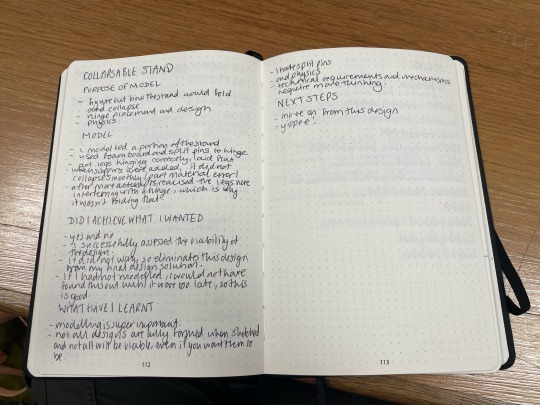 COLLAPSABLE STAND
PURPOSE OF MODEL
- figure out how the stand would fold
and collapse
- hinge placement and design
- physics
MODEL
- I modelled a portion of the stand
- used foam board and split pins to hinge
- got legs hinging correctly, laid flat
when supports were added, it did not
collapse smoothly (part material error)
after more active realised the legs were
interfering with hinge, which is why
it wasn't folding flat
DID I ACHIEVE WHAT I WANTED
- yes and no
- I successfully assessed the viability of
the design
- It did not work, so eliminate this design
from my final design solution.
- If I had not modelled, I would not have
found this out until it were too late, so this
is good
WHAT HAVE I LEARNT
- modelling is super important
- not all designs are fully formed when sketched
and not all will be viable, even if you want them to
be.
112
- I hate split pins
- and physics
- technical requirements and mechanisms
require more thinking.
NEXT STEPS
- move on from this design
- yippee!
113